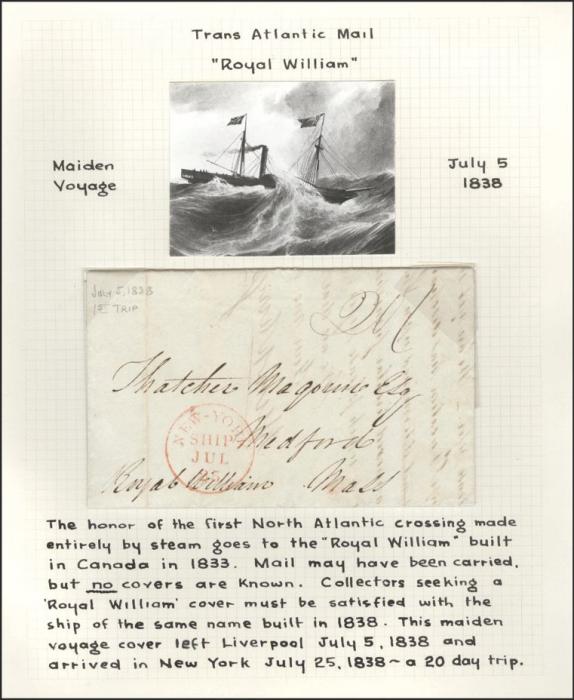 Trans Atlantic Mail
"Royal William"
Maiden
Voyage
July 5
1838
July 5, 1838
1st TRIP
Thatcher Magoun Esq
Medford
Mass
Royal William
NEW-YORK
SHIP
JUL
25
The honor of the first North Atlantic crossing made
entirely by steam goes to the "Royal William" built
in Canada in 1833. Mail may have been carried,
but no covers are known. Collectors seeking a
'Royal William' cover must be satisfied with the
ship of the same name built in 1838. This maiden
voyage cover left Liverpool July 5, 1838 and
arrived in New York July 25, 1838 ~ a 20 day trip.